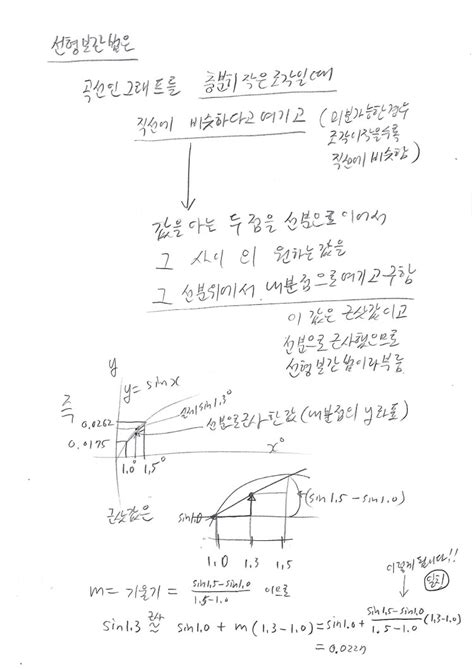 선형보간법은
곡선인 그래프를 충분히 작은 조각일 때
직선에 비슷하다고 여기고 (미분가능한 경우
조각이 작을수록
직선에 비슷함)
값을 아는 두 점을 선분으로 이어서
그 사이의 원하는 값을
그 선분위에서 내분점으로 여기고 구함
이 값은 근삿값이고
선분으로 근사했으므로
선형보간법이라 부름.
y
y=sinx
즉
실제 sin1.3°
0.0262
선분으로 근사한 값 (내분점의 y좌표)
0.0175
x°
1.0° 1.5°
근삿값은
sin1.0
(sin1.5-sin1.0)
1.0 1.3 1.5
이렇게 됩니다!!
일치
m= 기울기 = sin1.5-sin1.0 / 1.5-1.0 이므로
sin1.3 근사 ≈ sin1.0 + m(1.3-1.0) = sin1.0 + sin1.5-sin1.0 / 1.5-1.0 (1.3-1.0)